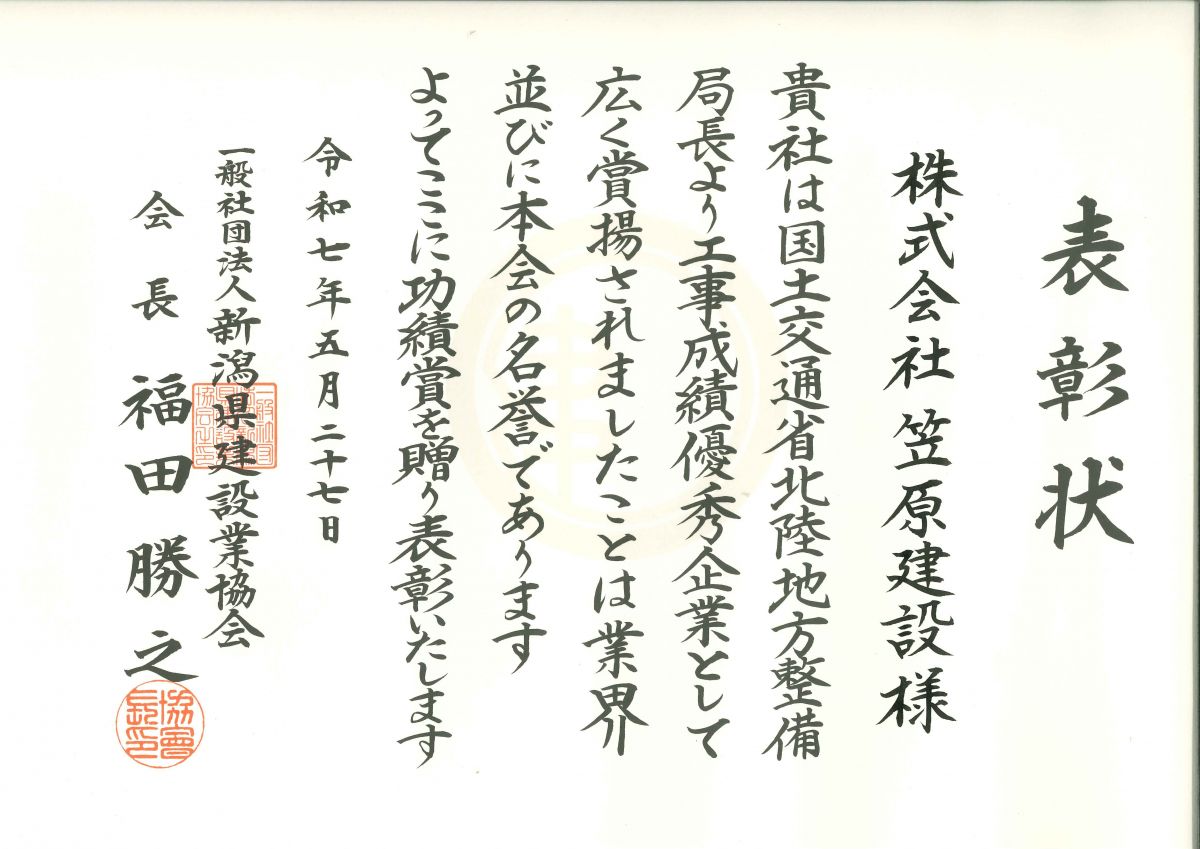 表彰状
株式会社 笠原建設様
貴社は国土交通省北陸地方整備
局長より工事成績優秀企業として
広く賞揚されましたことは業界
並びに本会の名誉であります
よってここに功績賞を贈り表彰いたします
令和七年五月二十七日
一般社団法人新潟県建設業協会
会長 福田勝之
協会長印